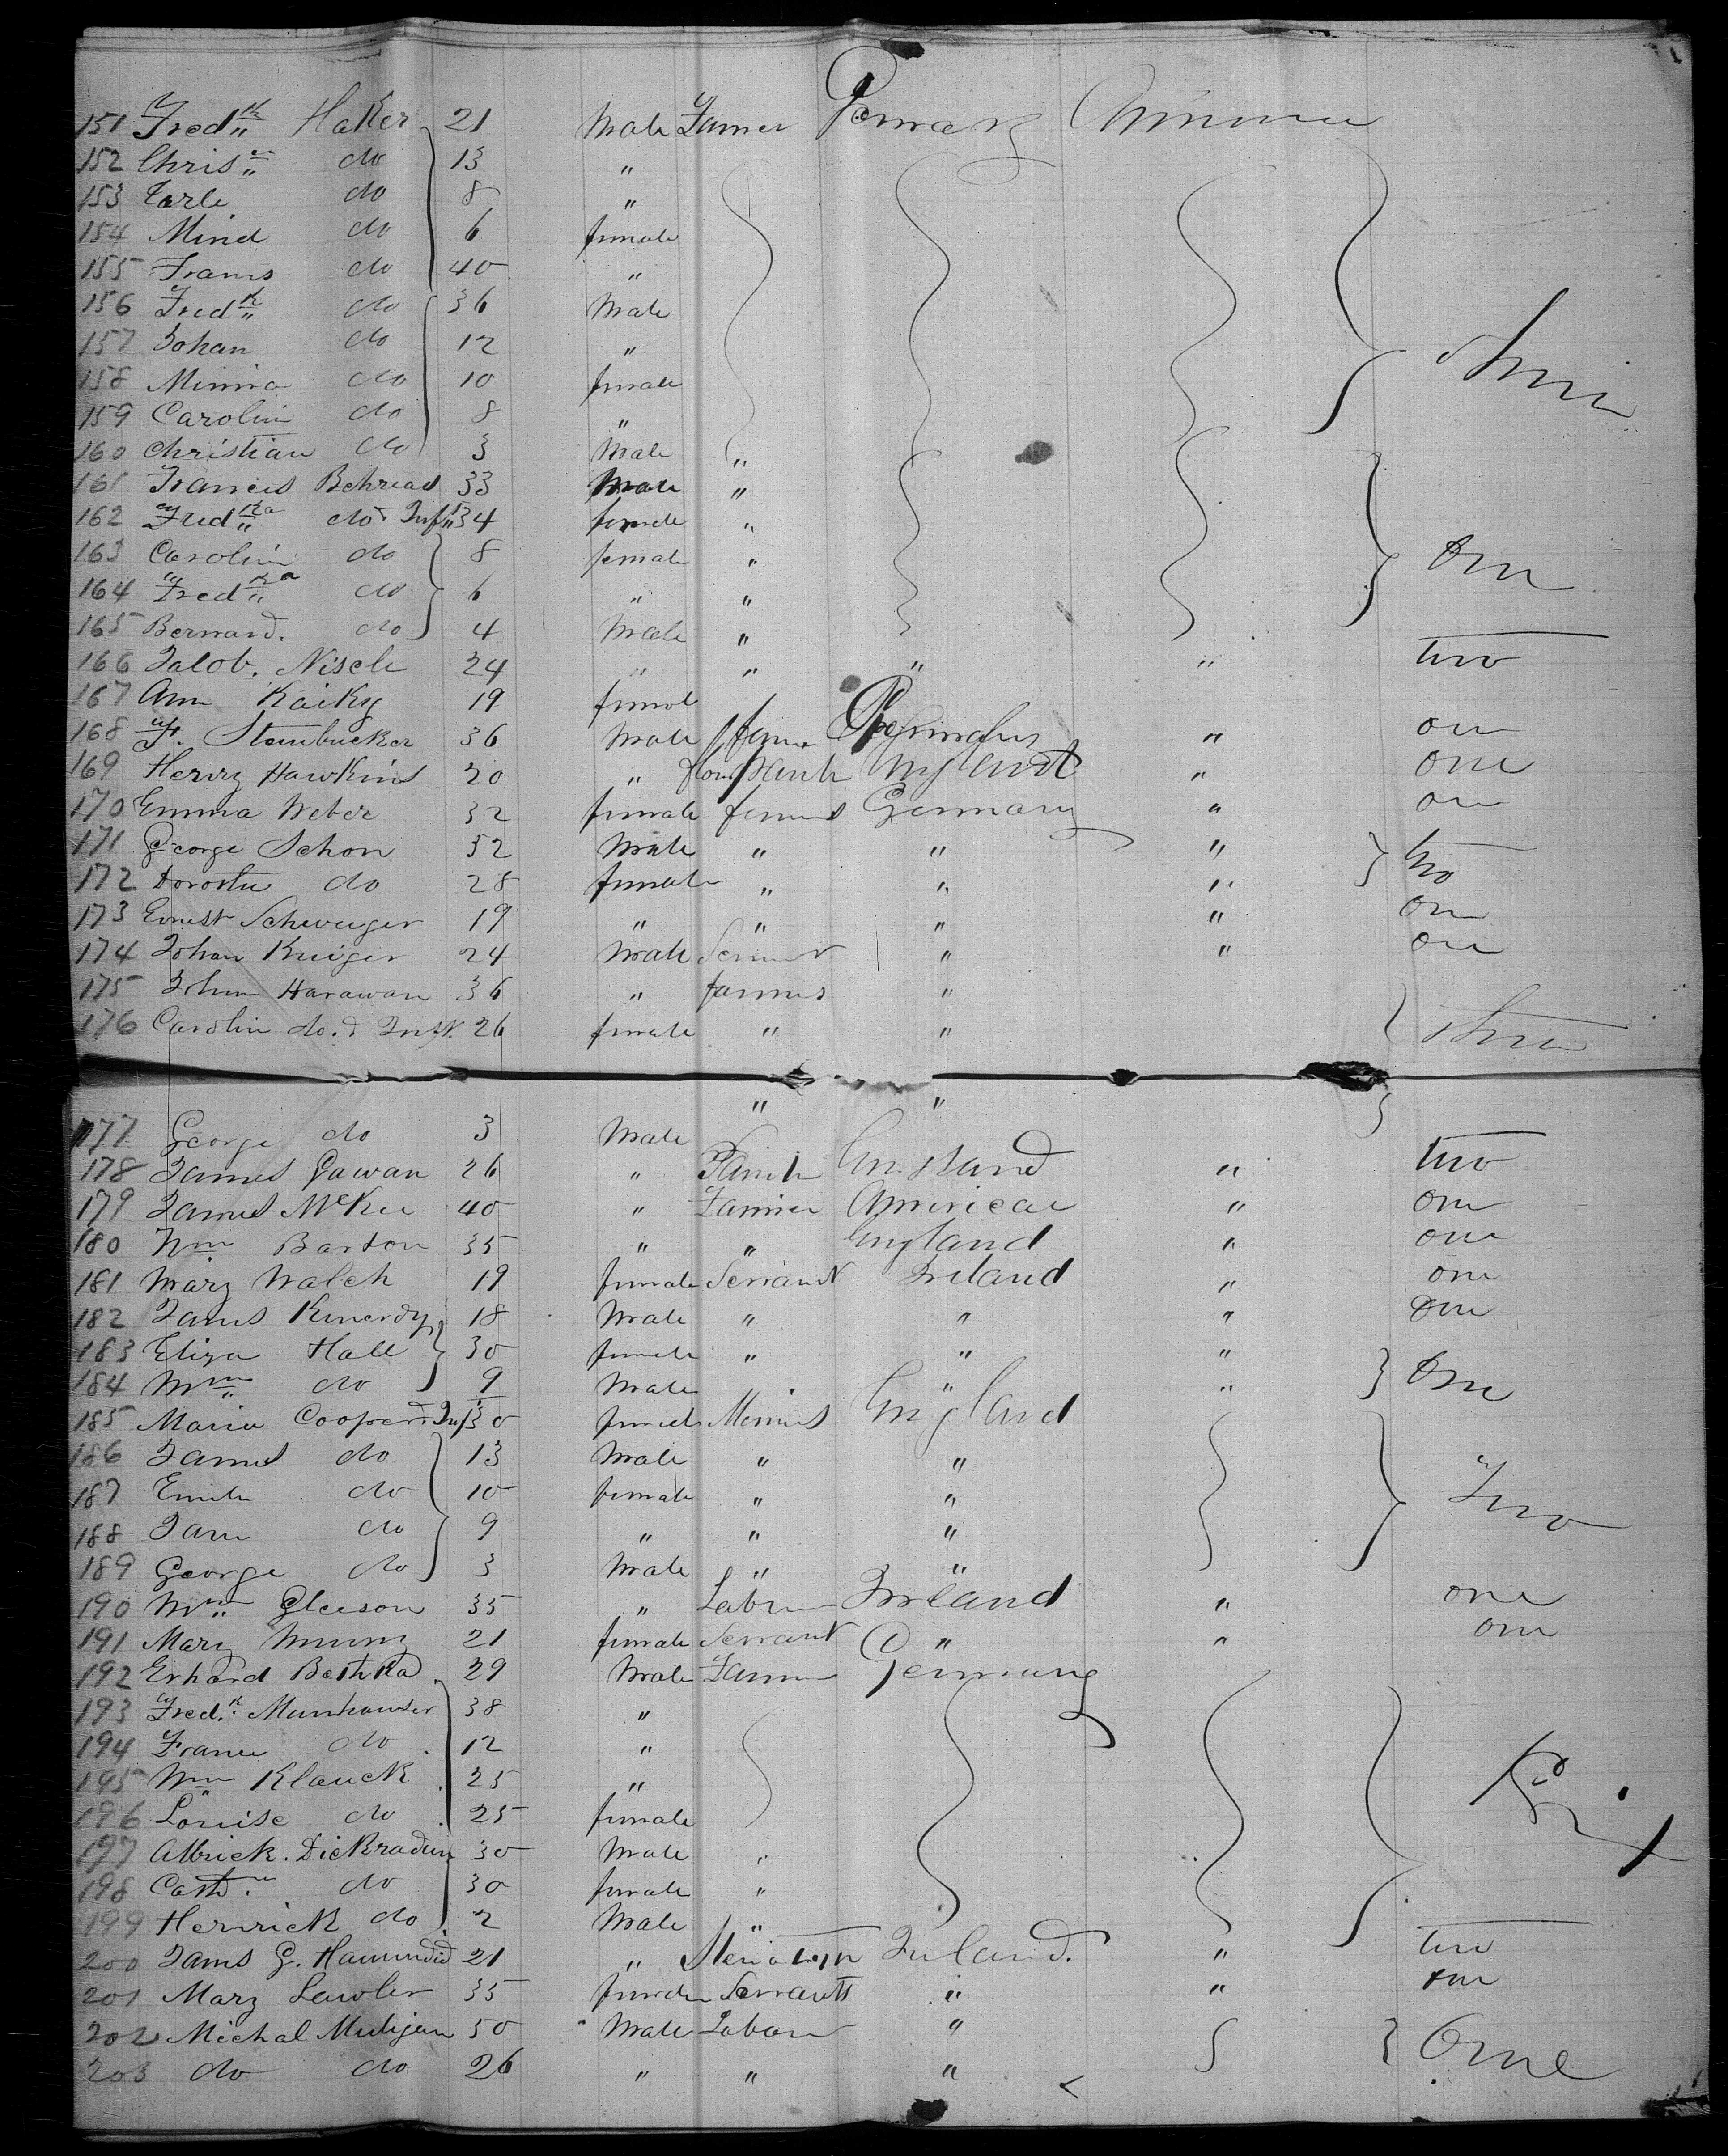 151 Fredk Haker 21 Male Farmer Germany America
152 Chrisn do 13 "
153 Carle do 8 "
154 Mind do 6 female
155 Frans do 40 "
156 Fredk do 36 Male
157 Johan do 12 "
158 Minna do 10 female
159 Carolin do 8 "
160 Christian do 3 Male "
161 Francis Behread 33 Male "
162 Fredka do & Inft 34 female "
163 Carolin do 8 female " One
164 Fredka do 6 " "
165 Bernard. do 4 Male "
166 Jacob. Nisele 24 " " " " two
167 Ann Kaiky 19 femal
168 F. Steinbucker 36 Male " one
169 Henry Hawkins 20 " England " one
170 Emma Weber 32 female farmers Germany " one
171 George Schon 32 Male " " " two
172 Dorostu do 28 female " " "
173 Ernest Schwuger 19 " " " " one
174 Johan Kruiger 24 Male Servant " " one
175 John Harawan 36 " farmers "
176 Carolin do. & Inft. 26 female " " three
177 George do 3 Male " "
178 James Gawan 26 " England " two
179 James McKee 40 " Farmer American " one
180 Wm Barton 35 " " England " one
181 Mary Walch 19 female Servant Ireland " one
182 James Kinerdy 18 Male " " " One
183 Eliza Hall 30 female " " " One
184 Wm do 9 Male " "
185 Maria Cooper & Inft 30 female England
186 James do 13 Male " " Two
187 Emile do 10 female " "
188 Jane do 9 " " "
189 George do 3 Male " "
190 Wm Gleeson 35 " Labrer Ireland " one
191 Mary 21 female Servant " " one
192 Erhard Bethka 29 Male Farmer Germany
193 Fredk Munhauser 38 "
194 Franu do 12 "
195 Wm Klauck 25 "
196 Louise do 25 female
197 Albrick. DicKradun 30 Male "
198 Cathn do 30 female "
199 Henrick do 2 Male "
200 James G. 21 " Ireland. " two
201 Mary Lawler 35 female Servants " " one
202 Michal Muligan 50 Male Labour " One
203 do do 26 " " "